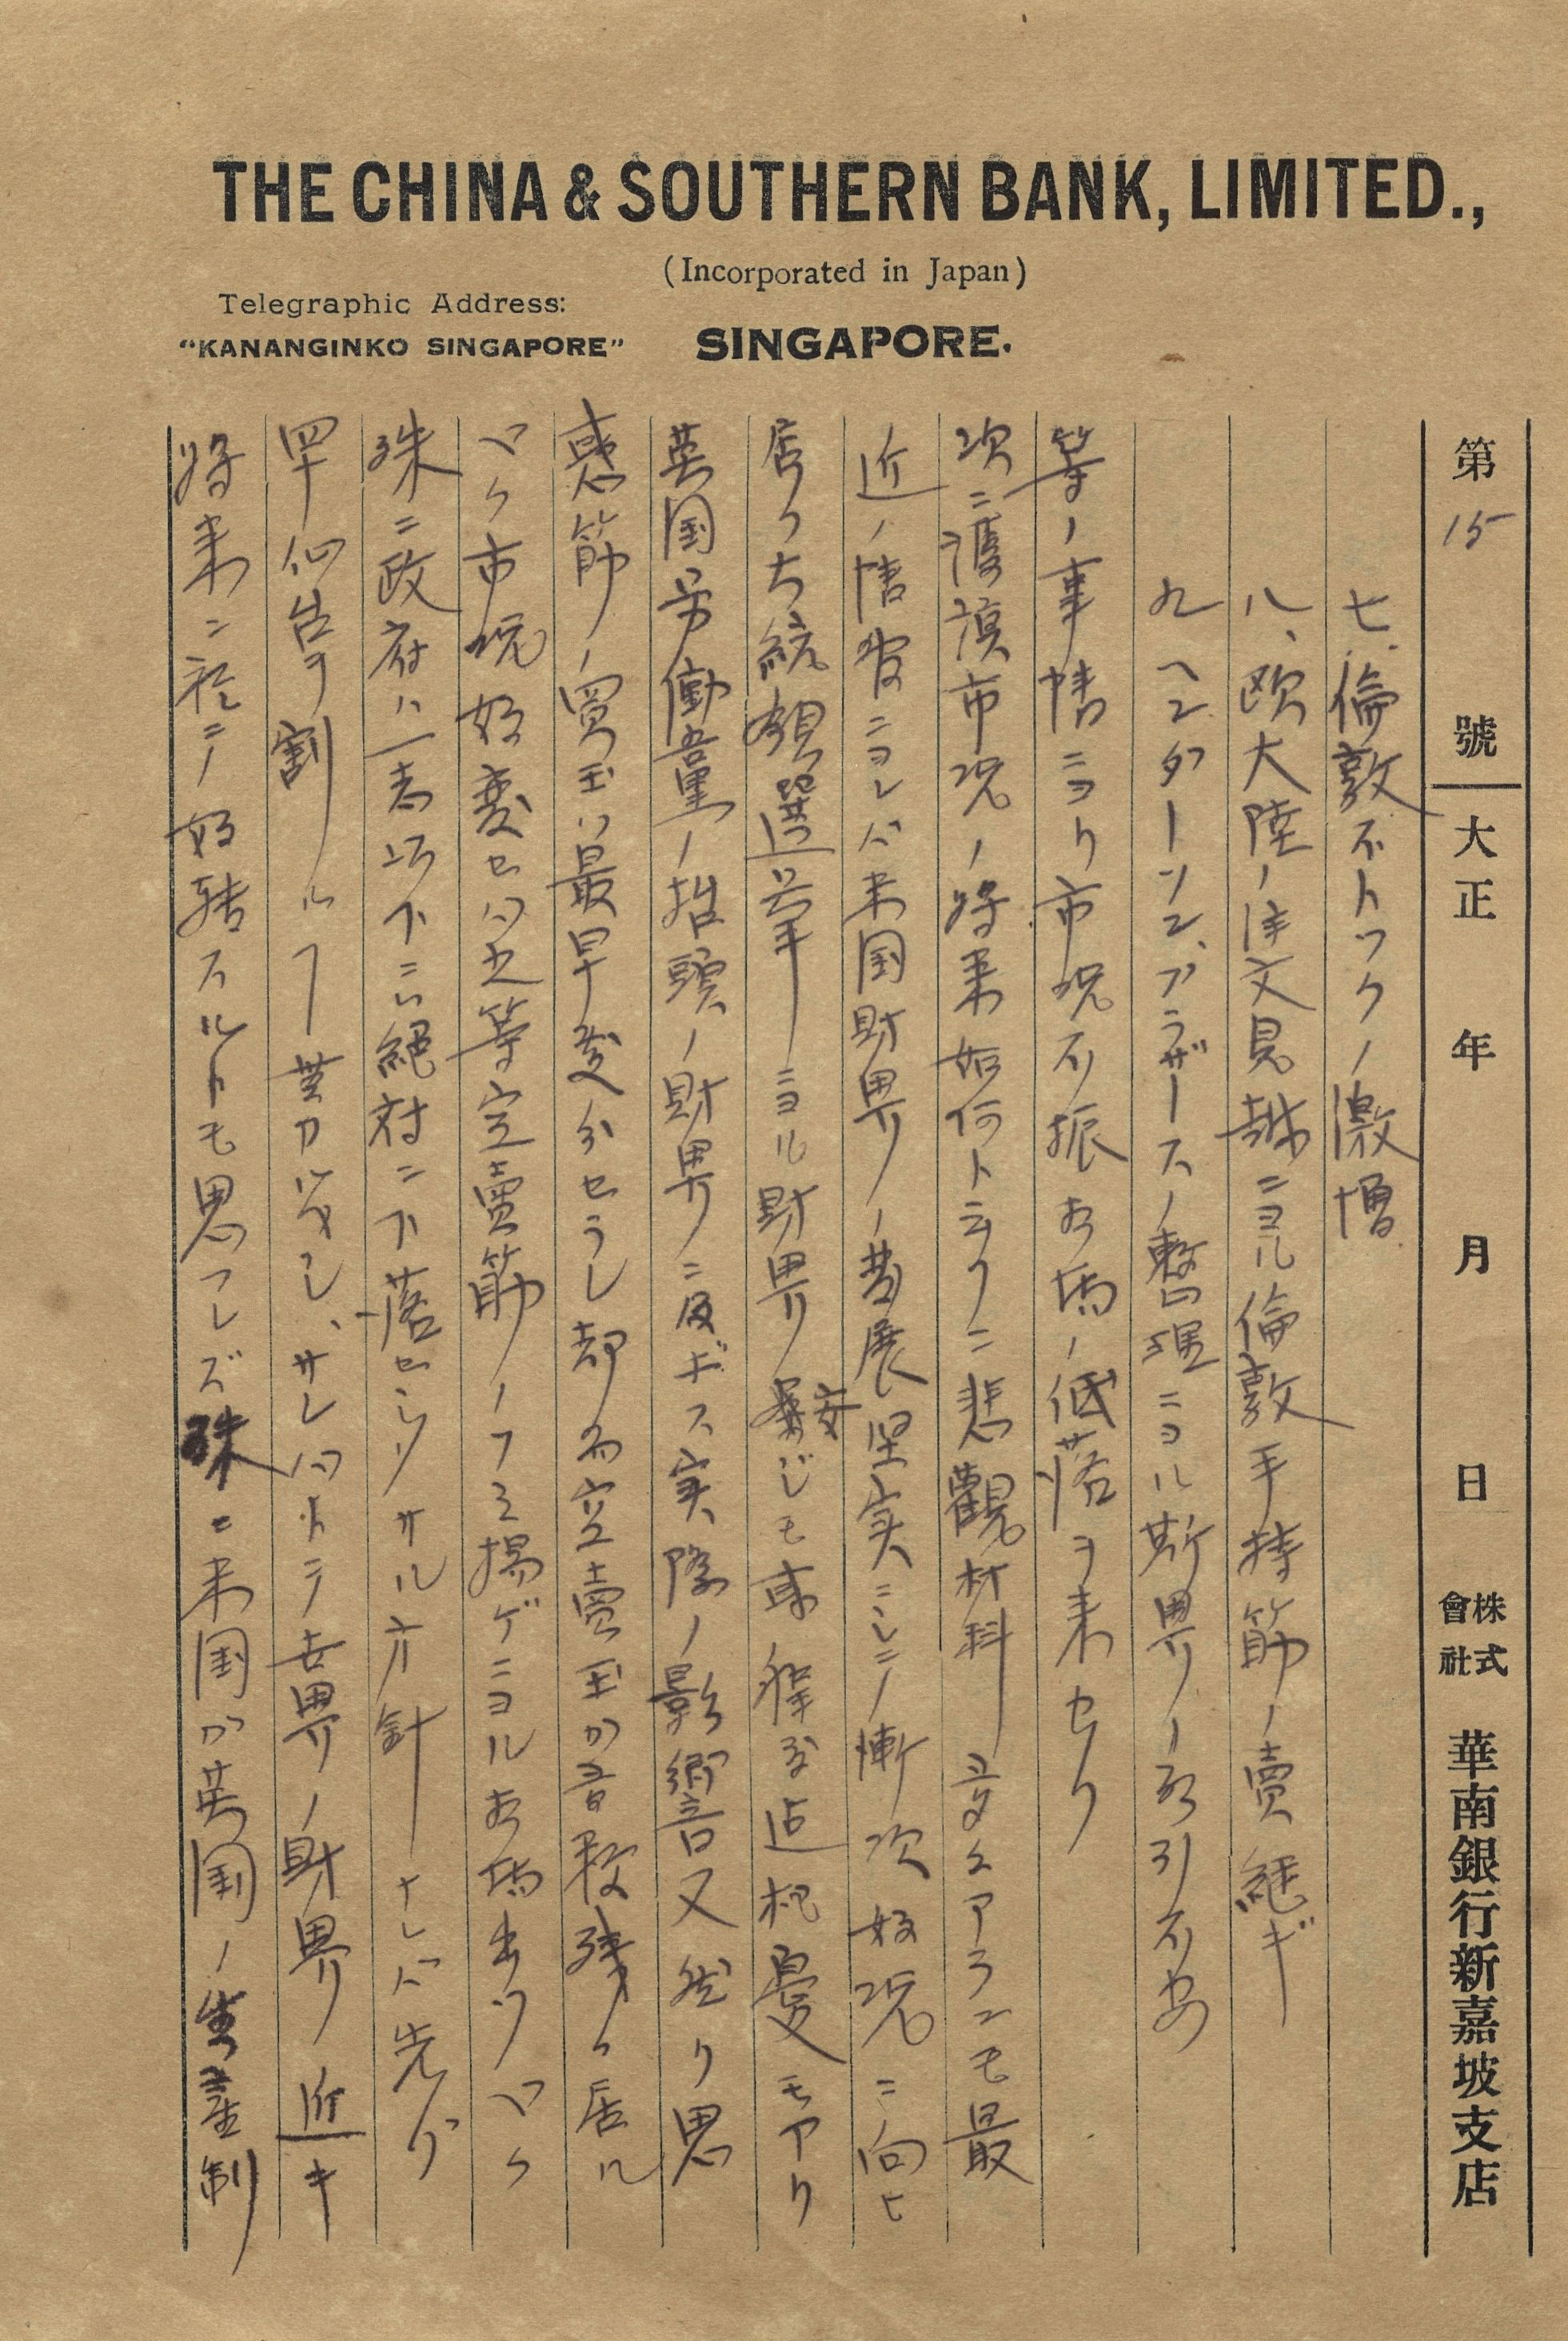 THE CHINA & SOUTHERN BANK, LIMITED.,
(Incorporated in Japan)
Telegraphic Address:
“KANANGINKO SINGAPORE”
SINGAPORE.
第15號 大正 年 月 日 株式會社 華南銀行新嘉坡支店
七、倫敦ストツクノ激増
八、欧大陸ノ注文見越ニヨル倫敦手持筋ノ賣継ギ
九 ヘンダーソン、ブラザースノ整理ニヨル斯界ノ取引不安
等ノ事情ニヨリ市況不振相場ノ低落ヲ来セリ
次ニ護謨市況ノ将来如何ト云フニ悲觀材料 アランモ最
近ノ情報ニヨレバ米国財界ノ発展堅実ニシテ漸次好況ニ向ヒ
居り 統領選挙ニヨル財界 モアリ
英国労働党ノ抬頭ノ財界ニ及ボス実際ノ影響又然リ思
惑筋ノ買玉ハ最早 分セラレ却 賣玉が 残り居ル
ベク市況好変セバ之等空賣筋ノフミ揚ゲニヨル相場出ヅベク
殊ニ政府ハ一志 以下ニハ絶対ニ下落セシメザル方針ナレバ先ヅ
早 仙台ヲ割ルコト 、サレバトテ世界ノ財界ノ近キ
将来ニ於テ好転スルトモ思ハレズ殊ニ米国が英国ノ生産制